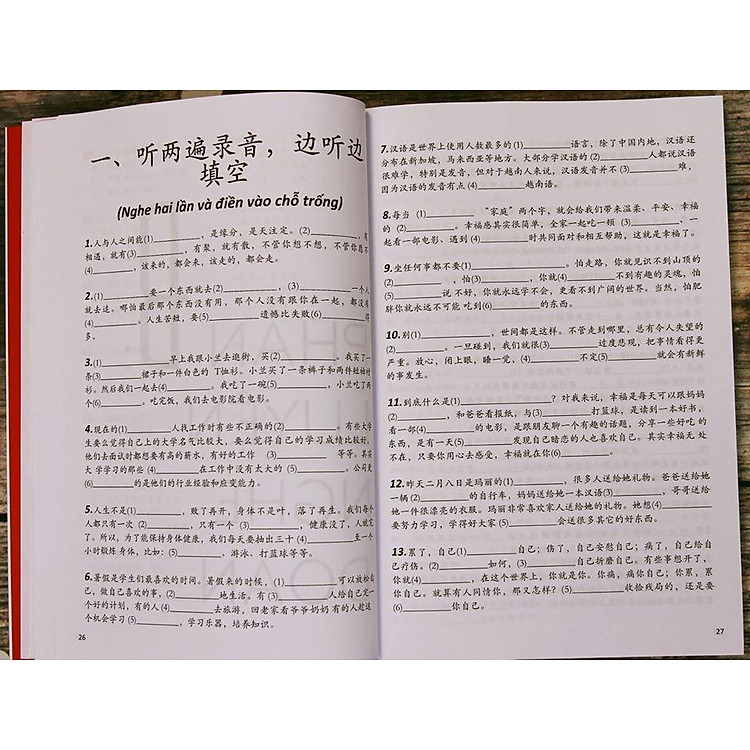 一、听两遍录音，边听边
填空
(Nghe hai lần và điền vào chỗ trống)
1.人与人之间能(1)__________，是缘分，是天注定。(2)__________，有
相遇，就有(3)__________有聚，就有散，不管你想不想，不管你愿不
(4)__________，该来的，都会来，该走的，都会走。
2.(1)__________要一个东西就去(2)__________，(3)__________一个人
就去追。哪怕最后那个东西没有用，那个人没有跟你在一起，都没有
(4)__________。人生苦短，要(5)__________遗憾比失败(6)__________得
多。
3.(1)__________早上我跟小兰去逛街，买(2)__________。我买了一
条(3)__________裙子和一件白色的 T恤衫。小兰买了一条裤子和两件短袖衬
衫。然后我们一起去(4)__________。我吃了一碗(5)__________，小兰吃了两
个(6)__________。吃完饭，我们去电影院看电影。
4.现在的(1)__________人找工作时有些不正确的(2)__________。有些大学
生要么觉得自己上的大学名气比较大，要么觉得自己的学习成绩比较好。
他们去面试时都想要有高的薪水，有好的工作 (3)__________等等。其
实大 学学习的那些 (4)__________在工作中没有太大的 (5)__________。公司更
(6)__________的是他们的行业经验和应变能力。
5.人生不是(1)__________，败了再开，身体不是叶，落了再生。我们每个
人都只有一次 (2)__________，只有一个 (3)__________，健康没了，人就完
了。所以，为了能保持身体健康，我们每天要抽出三十 (4)__________至一个
小时锻炼 身体，比如：(5)__________、游泳、打篮球等等。
6.暑假是学生们最喜欢的时间。暑假来的时候，(1)__________可以放松自
己，做自己喜欢的事，(2)__________地生活。有 (3)__________人给自己定一
个好的计划，有的人 (4)__________去旅游，回老家看爷爷奶奶 有的人趁这
个机会学习 (5)__________，学习乐器，培养知识。
26
7.汉语是世界上使用人数最多的 (1)__________语言，除了中国内地，汉语还
分布在新加坡，马来西亚等地方。大部分学汉语的 (2)__________人都说汉语
很难学，特别是发音，但对于越南人来说，汉语发音并不 (3)__________难，
因为汉语的发音有点 (4)__________越南语。
8.每当 (1)__________ “家庭”两个字，就会给我们带来温柔、平安、幸福
的 (2)__________。幸福感其实很简单，全家一起吃一顿 (3)__________、一
起看一部电影、遇到 (4)__________时共同面对和相互帮助，这就是幸福了。
9.坐任何事都不要(1)__________。怕走路，你就见识不到山顶的
(2)__________，怕(3)__________，你就(4)__________不到有趣的灵魂，怕
(5)__________说 不好，你就永远学不会，更看不到广阔的世界。当然，怕肥
胖你就永远不可能 吃到(6)__________的东西。
10.别(1)__________，世间都是这样。不管走到哪里，总有令人失望的
(2)__________。一旦碰到，我们就很(3)__________过度悲观，把事情看得更
严重。放心，闭上眼，睡一觉，(4)__________不定(5)__________就会有新鲜
的事发生。
11.到底什么是(1)__________？对我来说，幸福是每天可以跟妈妈
(2)__________，和爸爸看报纸，与(3)__________打篮球，是读到一本好书，
看一部(4)__________的电影，是跟朋友聊一个有趣的话题，分享一些好吃 的
东西，是有一天(5)__________发现自己暗恋的人也喜欢自己。其实幸福无 处
不在，只要你用心去感受，幸福就在你(6)__________。
12.昨天二月八日是玛丽的(1)__________，很多人送给她礼物。爸爸送给她
一辆(2)__________的自行车，妈妈送给她一本汉语(3)__________，哥哥送给
她一件很漂亮的衣服。玛丽非常喜欢家人送给她的礼物。她想(4)__________
要努力学习，学得好大家 (5)__________会送很多其它的好东西。
13.累了，自己(1)__________自己；伤了，自己安慰自己；痛了，自己给自
己疗伤。(2)__________如何，(3)__________自己折磨自己。有些事想开了，
你就(4)__________，在这个世界上，你就是你。你痛，痛你自己；你累，累
你自己。就算有人同情你，那又怎样？(5)__________收拾残局的，还是要
(6)__________你自己。
27